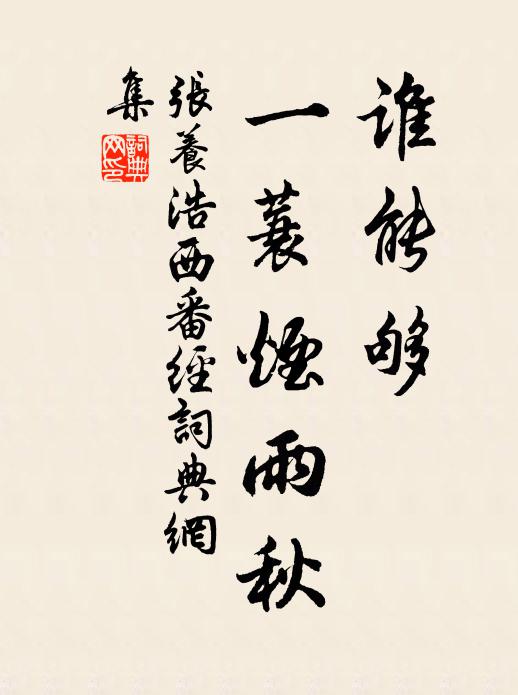 誰能够
一蓑煙雨秋
張養浩西番經詞典網
集
詞典
网印